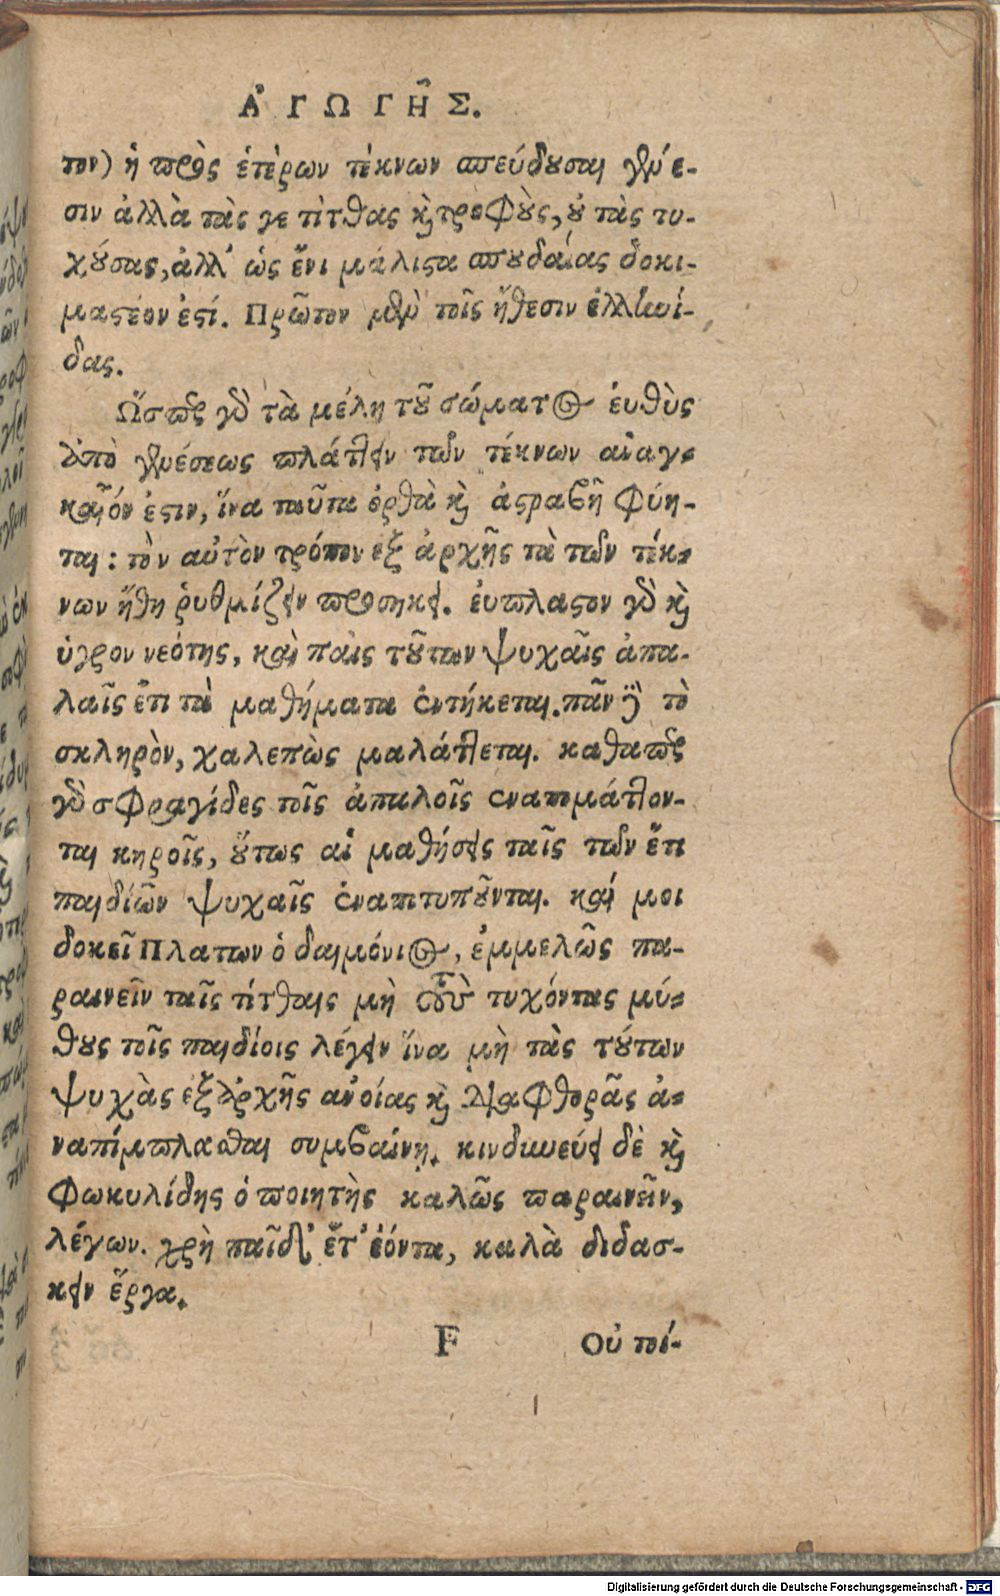 ἈΓΩΓΗ͂Σ.
τον) ἢ πρὸς ἑτέρων τέκνων σπεύδουσαι γένε-
σιν ἀλλὰ τάς γε τίτθας καὶ τροφοὺς, οὐ τὰς τυ-
χούσας, ἀλλ᾽ ὡς ἔνι μάλιστα σπουδαίας δοκι-
μαστέον ἐστί. Πρῶτον μὲν τοῖς ἤθεσιν ἑλληνί-
δας.
Ὥσπερ γὰρ τὰ μέλη τοῦ σώματος εὐθὺς
ἀπὸ γενέσεως πλάττειν τῶν τέκνων ἀναγ-
καῖόν ἐστιν, ἵνα ταῦτα ὀρθὰ καὶ ἀστραβῆ φύη-
ται: τὸν αὐτὸν τρόπον ἐξ ἀρχῆς τὰ τῶν τέκ-
νων ἤθη ῥυθμίζειν προσηκει. εὐπλαστον γὰρ καὶ
ὑγρον νεότης, καὶ ταῖς τούτων ψυχαῖς ἁπα-
λαῖς ἔτι τὰ μαθήματα ἐντήκεται. πᾶν δὲ τὸ
σκληρὸν, χαλεπῶς μαλάττεται. καθαπερ
γὰρ σφραγίδες τοῖς ἁπαλοῖς ἐναπομάττον-
ται κηροῖς, οὕτως αἱ μαθήσεις ταῖς τῶν ἔτι
παιδίων ψυχαῖς ἐναποτυποῦνται. καί μοι
δοκεῖ Πλατων ὁ δαιμόνιος, ἐμμελῶς πα-
ραινεῖν ταῖς τίτθαις μὴ τοὺς τυχόντας μύ-
θους τοῖς παιδίοις λέγειν ἵνα μὴ τὰς τούτων
ψυχὰς ἐξ ἀρχῆς ἀνοίας καὶ διαφθορᾶς ἀ-
ναπίμπλασθαι συμβαίνη. κινδυνεύει δὲ καὶ
Φωκυλίδης ὁ ποιητὴς καλῶς παραινεῖν,
λέγων. χρὴ παῖδ᾽ ἔτ᾽ ἐόντα, καλὰ διδασ-
κειν ἔργα.
F Οὐ τοί-
Digitalisierung gefördert durch die Deutsche Forschungsgemeinschaft - DFG